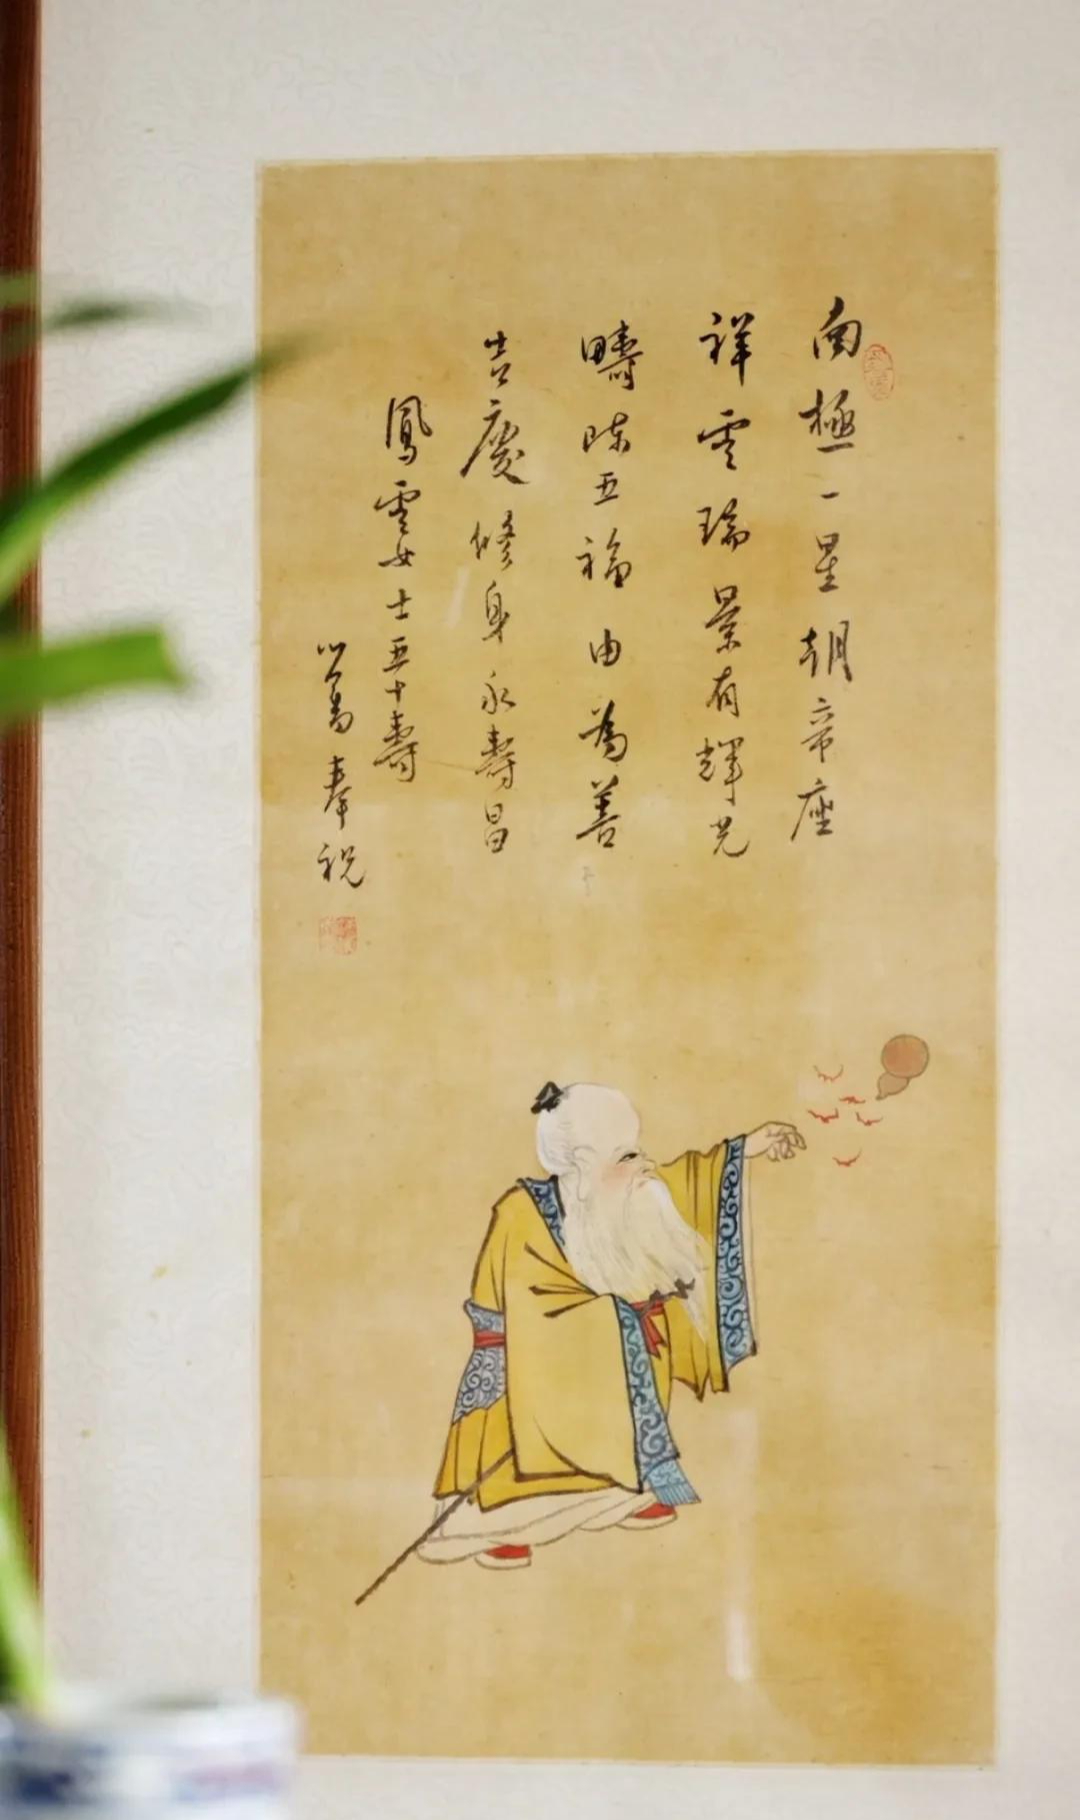 南極一星朝帝座
祥雲瑞景有輝光
疇陳五福由為善
吉慶修身永壽昌
鳳雲女士五十壽
心畬奉祝